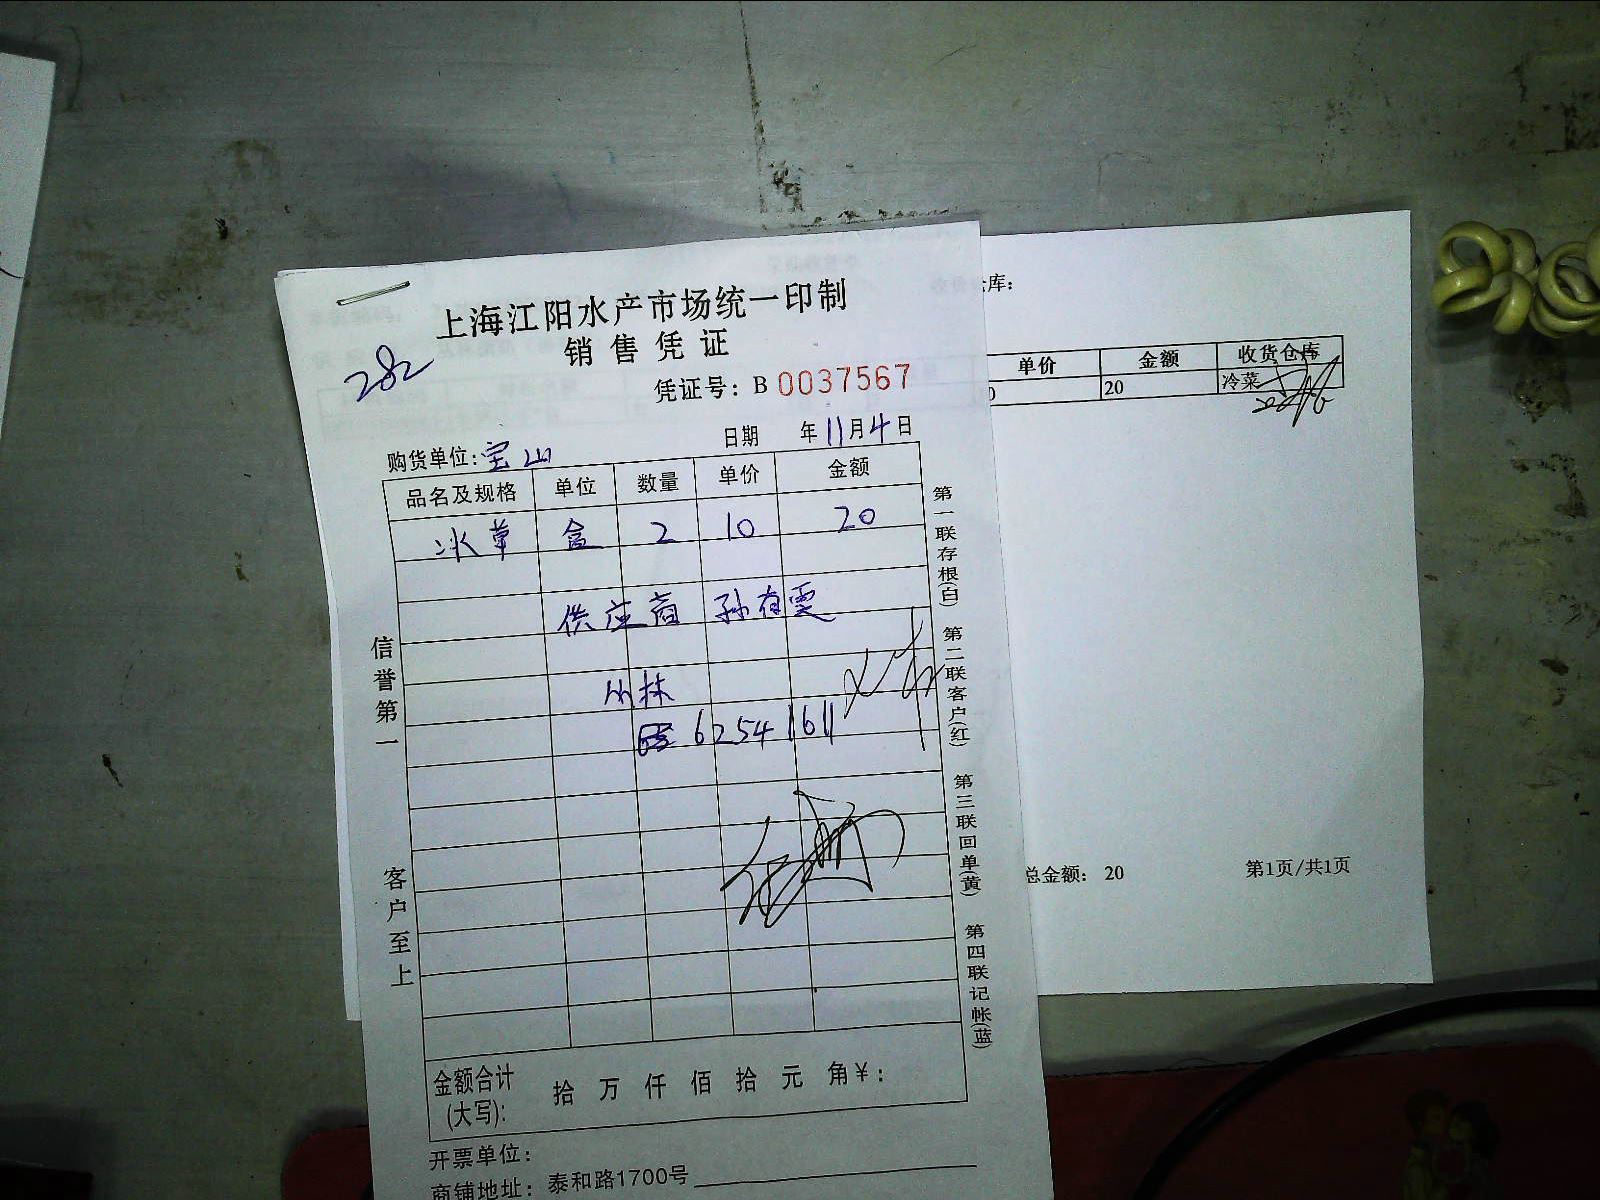 上海江阳水产市场统一印制
销售凭证
282
凭证号：B 0037567
日期 年11月4日
购货单位：宝山
品名及规格 单位 数量 单价 金额
冰草 盒 2 10 20
供应商 孙有雯
竹林
62541611
信誉第一
客户至上
第一联存根(白)
第二联客户(红)
第三联回单(黄)
第四联记帐(蓝)
金额合计(大写): 拾 万 仟 佰 拾 元 角￥:
开票单位：
商铺地址：泰和路1700号
库：
单价 金额 收货仓库
20 冷菜
总金额： 20
第1页/共1页